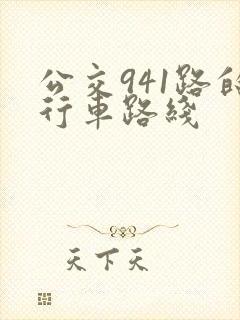 公交941路的
行车路线
天下天